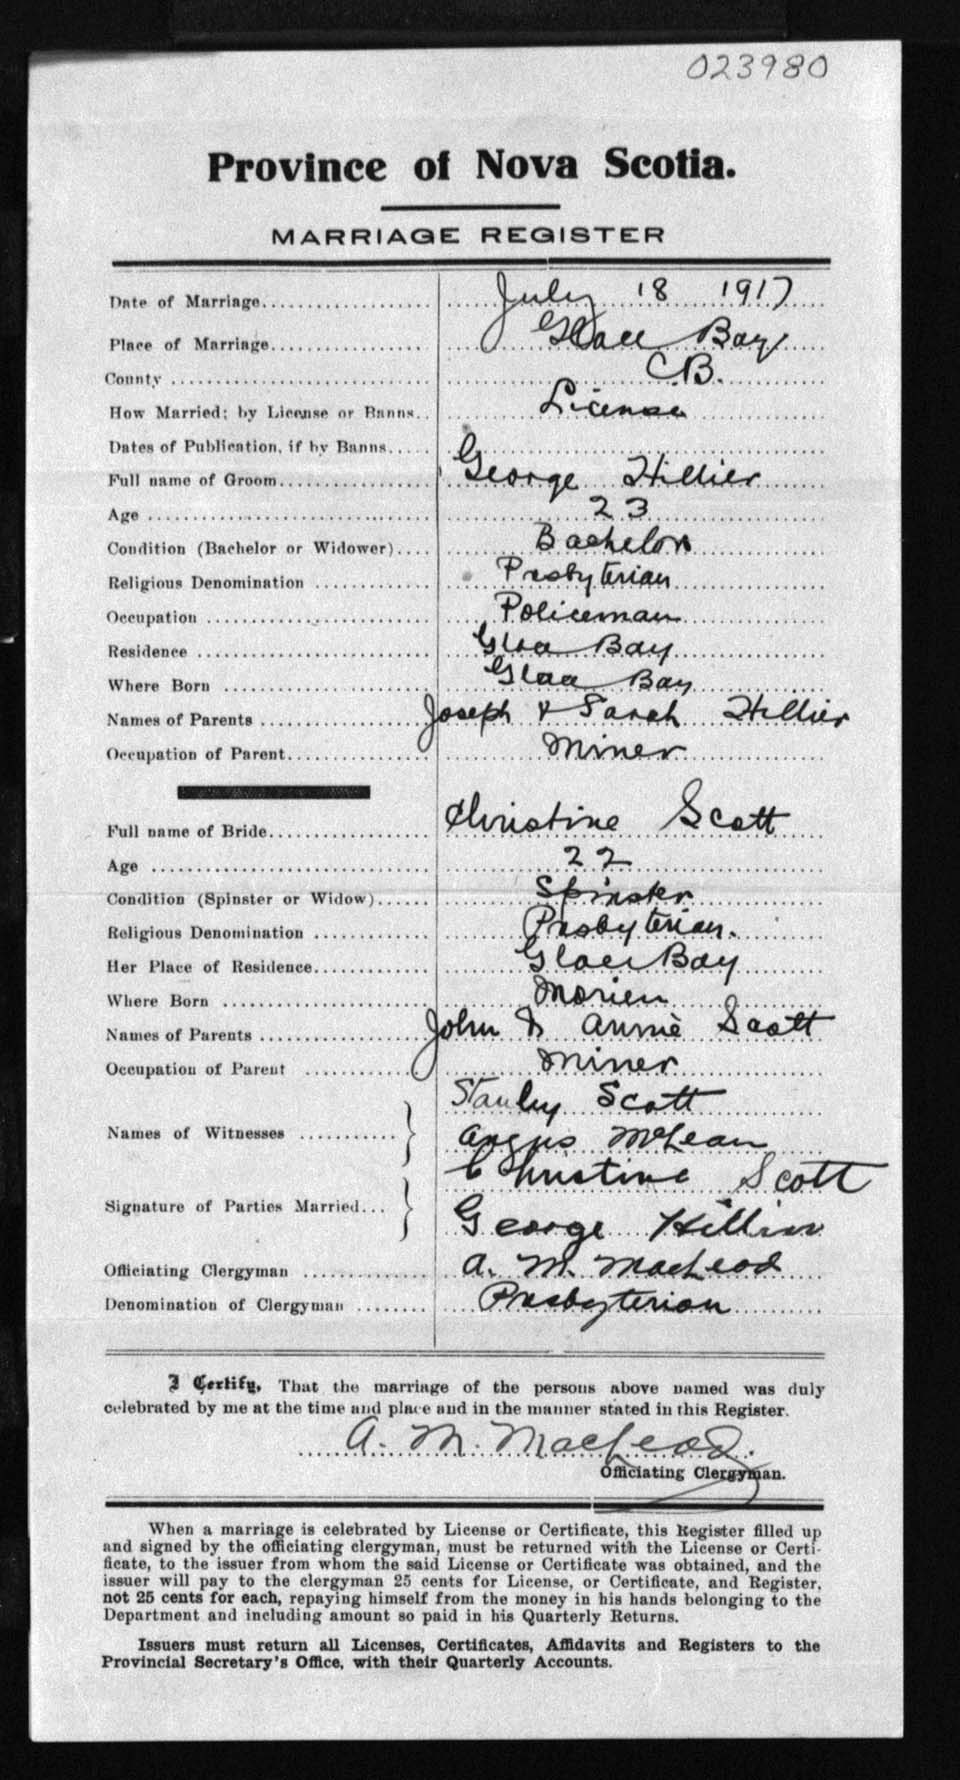 023980
Province of Nova Scotia.
MARRIAGE REGISTER
Date of Marriage.................... July 18 1917
Place of Marriage................... Glace Bay
County .............................. C.B.
How Married; by License or Banns.. License
Dates of Publication, if by Banns.....
Full name of Groom.................. George Hillier
Age ................................. 23
Condition (Bachelor or Widower).... Bachelor
Religious Denomination .............. Presbyterian
Occupation .......................... Policeman
Residence ........................... Glace Bay
Where Born .......................... Glace Bay
Names of Parents .................... Joseph & Sarah Hillier
Occupation of Parent................. Miner
Full name of Bride................... Christine Scott
Age ................................. 22
Condition (Spinster or Widow)...... Spinster
Religious Denomination .............. Presbyterian.
Her Place of Residence.............. Glace Bay
Where Born .......................... Morien
Names of Parents .................... John & Annie Scott
Occupation of Parent ............ Miner
Stanley Scott
Names of Witnesses ........... } Angus McLean
Christine Scott
Signature of Parties Married... } George Hillier
Officiating Clergyman ............... A. M. MacLeod
Denomination of Clergyman ........ Presbyterian
I Certify, That the marriage of the persons above named was duly
celebrated by me at the time and place and in the manner stated in this Register.
A. M. MacLeod.
Officiating Clergyman.
When a marriage is celebrated by License or Certificate, this Register filled up
and signed by the officiating clergyman, must be returned with the License or Certi-
ficate, to the issuer from whom the said License or Certificate was obtained, and the
issuer will pay to the clergyman 25 cents for License, or Certificate, and Register,
not 25 cents for each, repaying himself from the money in his hands belonging to the
Department and including amount so paid in his Quarterly Returns.
Issuers must return all Licenses, Certificates, Affidavits and Registers to the
Provincial Secretary's Office, with their Quarterly Accounts.